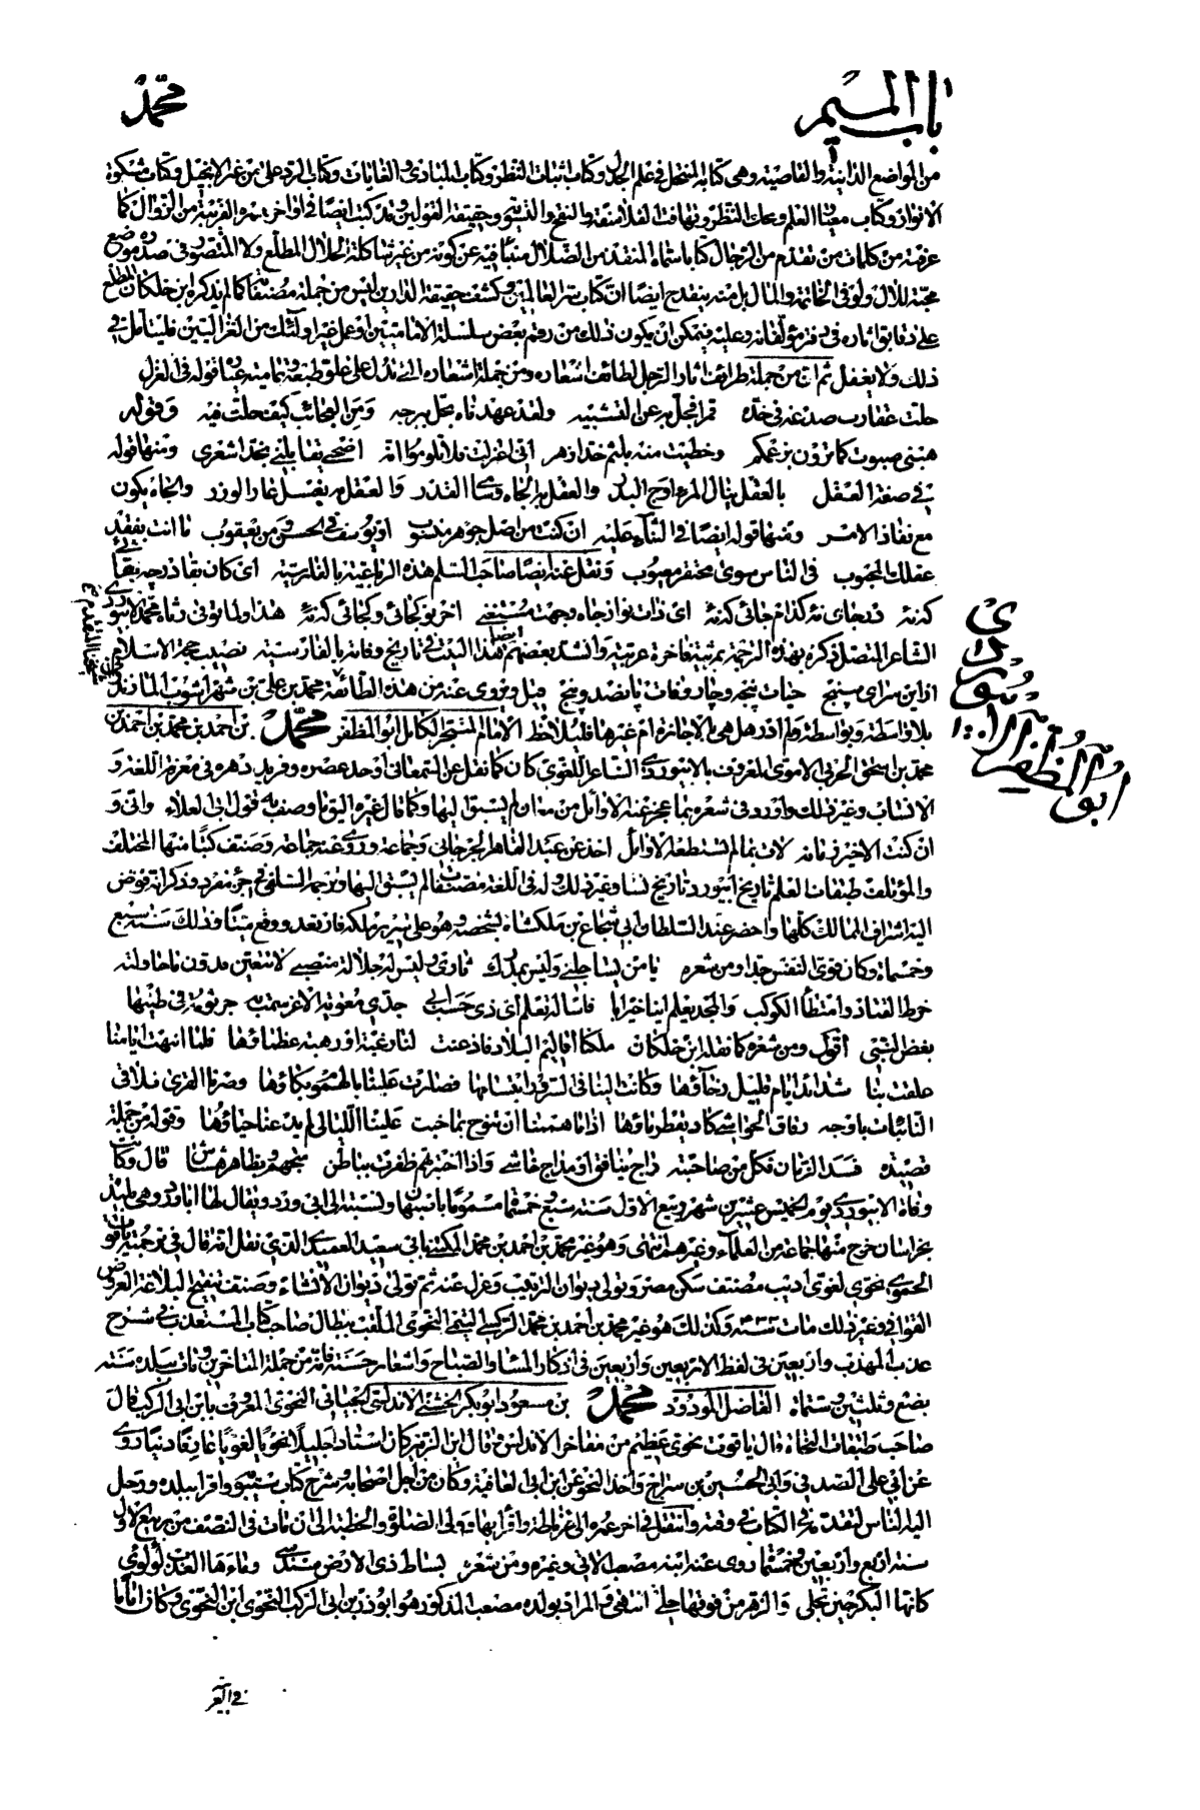 باب الميم
محمّد
من المواضع الدانية والقاصية وهى كتابه المنتحل فى علم الجدل وكتاب اثبات النظر وكتاب المبادى والغايات وكتاب الرد على من غير الانجيل وكتاب مشكوة
الانوار وكتاب معيار العلم ومحك النظر وتهافت الفلاسفة والنفخ والتسوية وحقيقة القولين وقد كتب ايضا فى اواخر عمره القريبة من الزوال كما
عرفته من كلمات من تقدم من الرجال كتابا سماه المنقذ من الضلال
علی دقايق اثاره فى مؤلفاته وعليه فيمكن ان يكون ذلك من رقم بعض سلسلة الامامية او عمل غير اولئك من الغزاليين فليتأمل فى
ذلك ولا يغفل ثم ان من جملة طرائف اثار الرجل لطائف اشعاره ومن جملة اشعاره التى تدل على علو طبعه قوله فى الغزل
حلت عقارب صدغه فى خده قمرا فجل به عن التشبيه ولقد عهدناه يحل ببرجه ومن العجائب كيف حلت فيه وقوله
هبنى صبوت كما ترون بزعمكم وحظيت منه بلثم خد ازهر انى اعتزلت فلا تلوموا انه اضحى يقابلنى بخد اشعرى ومنها قوله
فى صفة العقل بالعقل ينال المرء اوج البدر والعقل به الجاه وسامى القدر والعقل به يغسل عار الوزر والجاه يكون
مع نفاذ الامر ومنها قوله ايضا فى الثناء عليه ان كنت من اصل جوهر منسوب او يوسف فى الحسن ومن يعقوب ما انت بفقد
عقلك المحبوب فى الناس سوى محتقر معيوب ونقل عنه ايضا صاحب السلم هذه الرباعية بالفارسية اى كان بقا درچه بقائى
كه نه در جاى نه كدام جائى كه نه اى ذات تو از جاه وجهت مستغنى اخر تو كجائى وكجائى كه نه هذا ولما توفى رثاه محمد الابيوردى
الشاعر المتصل ذكره بهذه الترجمة بمرثية فاخرة عربية وانشد بعضهم ايضا هذا البيت فى تاريخ وفاته بالفارسية نصيب حجة الاسلام
ازاين سراى سپنج حيات پنجه وچار وفات پانصد وپنج قيل ويروى عنه من هذه الطائفة محمد بن على بن شهراشوب المازندرانى
بلا واسطة وبواسطة ولم ادر هل هى بالاجازة ام غيرها فليلاحظ الامام المتبحر الكامل ابو المظفر محمّد بن احمد بن محمد بن احمد بن
محمد بن اسحق الحربى الاموى المعروف بالابيوردى الشاعر اللغوى كان كما نقل عن السمعانى اوحد عصره وفريد دهره فى معرفة اللغة و
الانساب وغير ذلك واورد فى شعره ما عجز عنه الاوائل من معان لم يسبق اليها وكما قال غيره اليق ما وصف به قول ابى العلاء وانى و
ان كنت الاخير زمانه لات بما لم تستطعه الاوائل اخذ عن عبد القاهر الجرجانى وجماعة وروى عنه جماعة وصنف كتبا منها المختلف
والمؤتلف طبقات العلم تاريخ ابيورد تاريخ نسا وغير ذلك له فى اللغة مصنفات ما لم يسبق اليها وترجمه السلفى فى جزء مفرد وذكر انه فوض
اليه اشراف الممالك كلها واحضر عند السلطان ابى شجاع بن ملكشاه بشخصه وهو على سرير ملكه فارتعد ووقع ميتا وذلك سنة سبع
وخمسمائة وكان قوى النفس جدا ومن شعره يا من يساجلنى وليس بمدرك شاوى وليس له جلالة منصبى لا تتعبن فدون ما حاولته
خرط القتاد وامتطاء الكوكب والمجد يعلم اينا خير ابا فاساله تعلم اى ذى حسب ابى جدى معوية الاغر سمت به جرثومة فى طينها
بعض النبى اقول ومن شعره كما نقله ابن خلكان ملكنا اقاليم البلاد فاذعنت لنا رغبة او رهبة عظماؤها فلما انتهت ايامنا
علقت بنا شدائد ايام قليل رخاؤها وكانت الينا فى السرور ابتسامها فصارت علينا بالهموم بكاؤها وصرنا نلاقى
النائبات باوجه رقاق الحواشى كاد يقطر ماؤها اذا ما هممنا ان نبوح بما جنت علينا الليالى لم يدعنا حياؤها وقوله من جملة
قصيدة فسد الزمان فكل من صاحبته راج ينافق او مداج خاشى واذا اختبرتهم ظفرت بباطن متجهم وبظاهر هشاش قال وكانت
وفاة الابيوردى يوم الخميس عشرين شهر ربيع الاول سنة سبع خمسمائة مسموما باصبهان ونسبته الى ابى ورد ويقال لها اباورد وهى بليدة
بخراسان خرج منها جماعة من العلماء وغيرهم انتهى وهو غير محمد بن احمد بن محمد المكنى بابى سعيد العميدى الذى نقل انه قال فى ترجمته ياقوت
الحموى نحوى لغوى اديب مصنف سكن مصر وتولى ديوان الترتيب وعزل عنه ثم تولى ديوان الانشاء وصنف تنقيح البلاغة العروض
القوافى وغير ذلك مات سنة وكذلك هو غير محمد بن احمد بن محمد الركبى اليمنى النحوى الملقب ببطال صاحب كتاب المستعذب فى شرح
غريب المهذب واربعين فى لفظ الاربعين واربعين فى اذكار المساء والصباح واشعار حسنة فانه من جملة المتاخرين ومات ببلده سنة
بضع وثلثين وستمائة الفاضل المودود محمّد بن مسعود ابو بكر الخشنى الاندلسى الجيانى النحوى المعروف بابن ابى الركب قال
صاحب طبقات النحاة قال ياقوت نحوى عظيم من مفاخر الاندلس وقال ابن الزبير كان استاذا جليلا نحويا لغويا عارفا دينا روى
عن ابى على الصدفى وابى الحسين بن سراج واخذ النحو عن ابن ابى العافية وكان من اجل اصحابه وشرح كتاب سيبويه واقرا ببلده ورحل
اليه الناس لتقدمه فى الكتاب فى وقته وانتقل فى اخر عمره الى غرناطة واقرأ بها وولى الصلوة والخطبة الى ان مات فى النصف من ربيع الاول
سنة اربع واربعين وخمسمائة روى عنه ابنه مصعب الاتى وغيره ومن شعره بساط ذى الارض سندسى وماءها العذب لؤلؤى
كانها البكر حين تجلى والزهر من فوقها حلى انتهى والمراد بولده مصعب المذكور هو ابو ذر بن ابى الركب النحوى ابن النحوى وكان اماما
ابو المظفر الابيوردى
فى العر